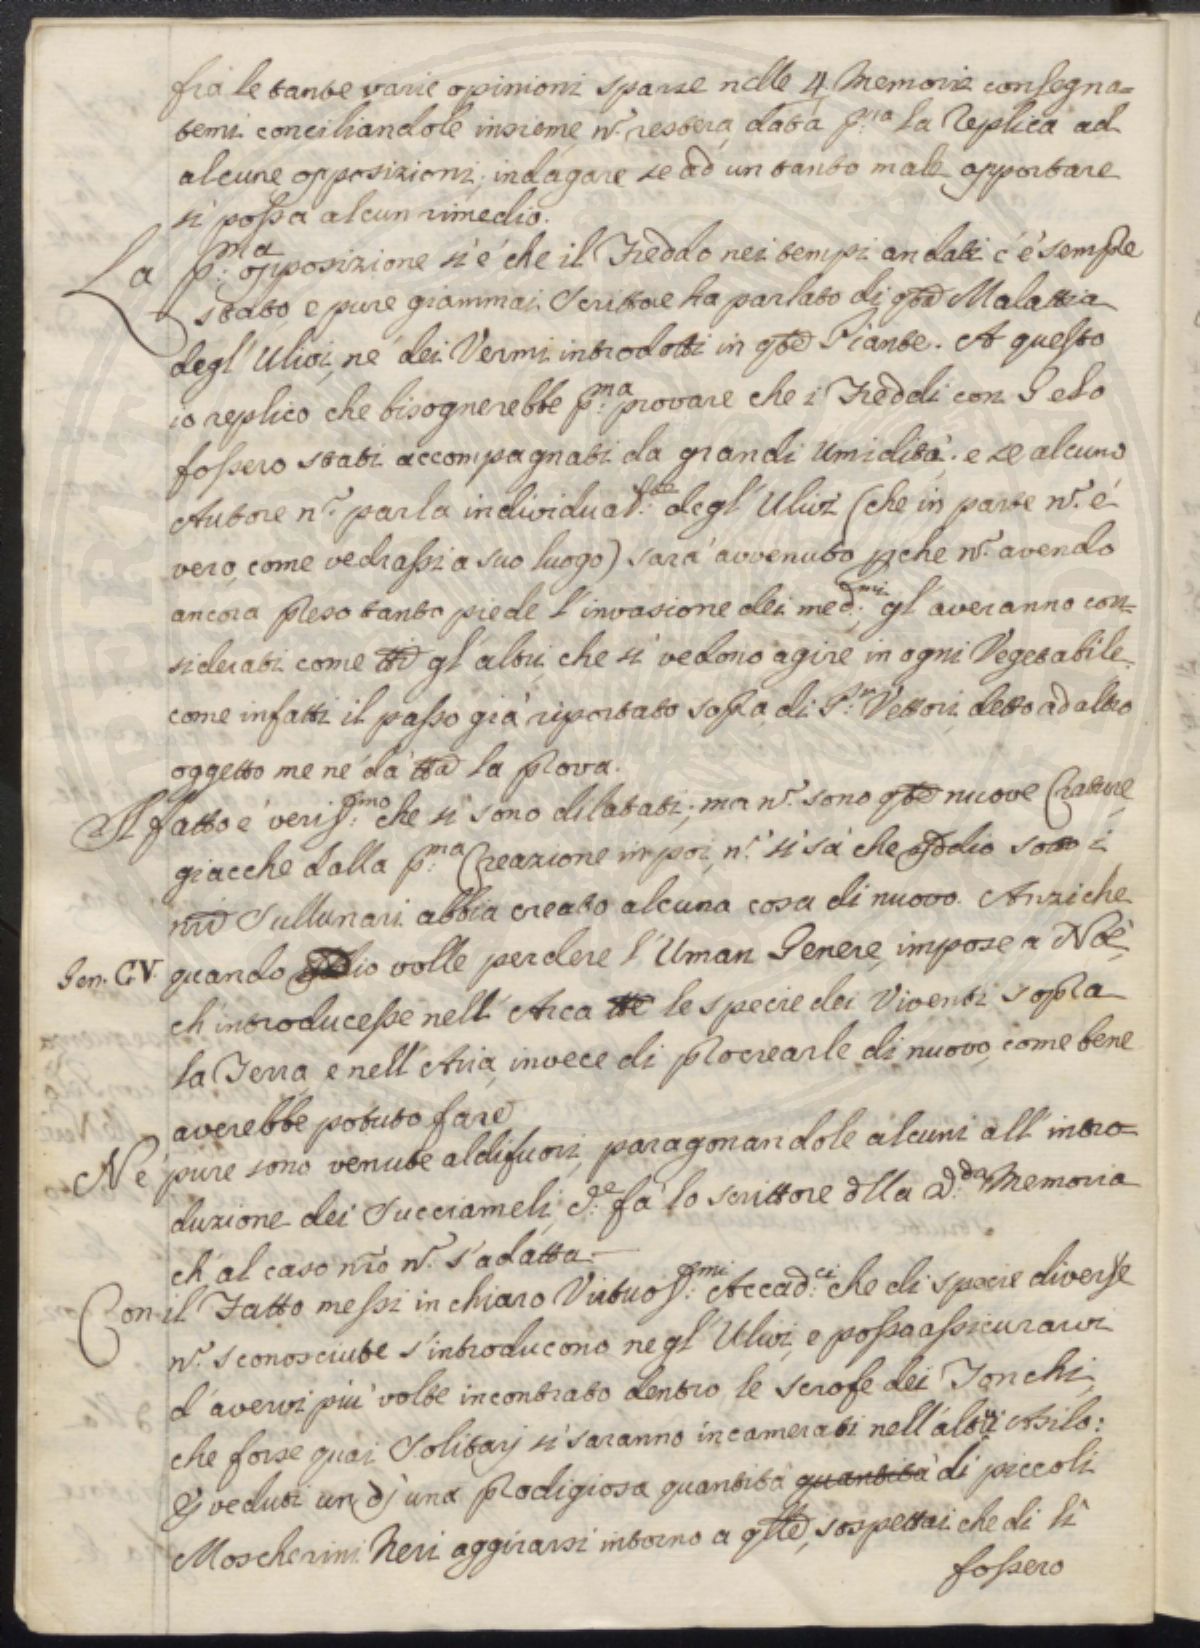 frà le tante varie opinioni sparse nelle 4 Memorie consegna=
temi conciliandole insieme, n.̃ restera, data p.ma la Replica ad
alcune opposizioni, indagare se ad un tanto male apportare
si possa alcun rimedio.
La p.ma opposizione si è che il Freddo nei tempi andati c'è sempre
stato, e pure giammai Scrittore ha parlato di qte Malattia
degl'Ulivi, ne dei Vermi introdotti in qte Piante. A questo
io replico che bisognerebbe p.ma provare che i Freddi con Gelo
fossero stati accompagnati da grandi Umidità: e se alcuno
Autore n.̃ parla individual.te degl'Ulivi (che in parte n.̃ é
vero, come vedrassi a suo luogo) sarà avvenuto, pche n.̃ avendo
ancora preso tanto piede l'invasione dei med.mi gl'averanno con=
siderati come tti gl'altri, che si vedono agire in ogni Vegetabile,
come infatti il passo già riportato sopra, di P.r Vettori, detto ad altro
oggetto me ne dà tta la prova.
Il fatto è veris.mo che si sono dilatati; ma n.̃ sono qte nuove Crature,
giacche dalla p.ma Creazione in poi, n.̃ si sà che Iddio sotto i
nri Sullunari abbia creato alcuna cosa di nuovo. Anziche
Gen. C.V. quando Iddio volle perdere l'Uman Genere, impose a Noè,
ch'introducesse nell'Arca tte le specie dei Viventi sopra
la Terra, e nell'Aria, invece di procrearle di nuovo, come bene
averebbe potuto fare
Nè pure sono venute aldifuori, paragonandole alcuni all'intro=
duzione dei Succiameli, c.e fà lo scrittore dlla d.da Memoria
ch'al caso nro n.̃ s'adatta.—
Con il Fatto messi in chiaro Virtuos.mi Accad.ci che di specie diverse
n.̃ sconosciute s'introducono negl'Ulivi, e posso assicurarvi
d'avervi più volte incontrato dentro le scrofe dei Tonchi,
che forse quai Solitarj si saranno incamerati nell'altrui Asilo:
Ej veduti un dì una prodigiosa quantità quantità di piccoli
Moscherini Neri aggirarsi intorno a qlle, sospettai che di lì
fossero